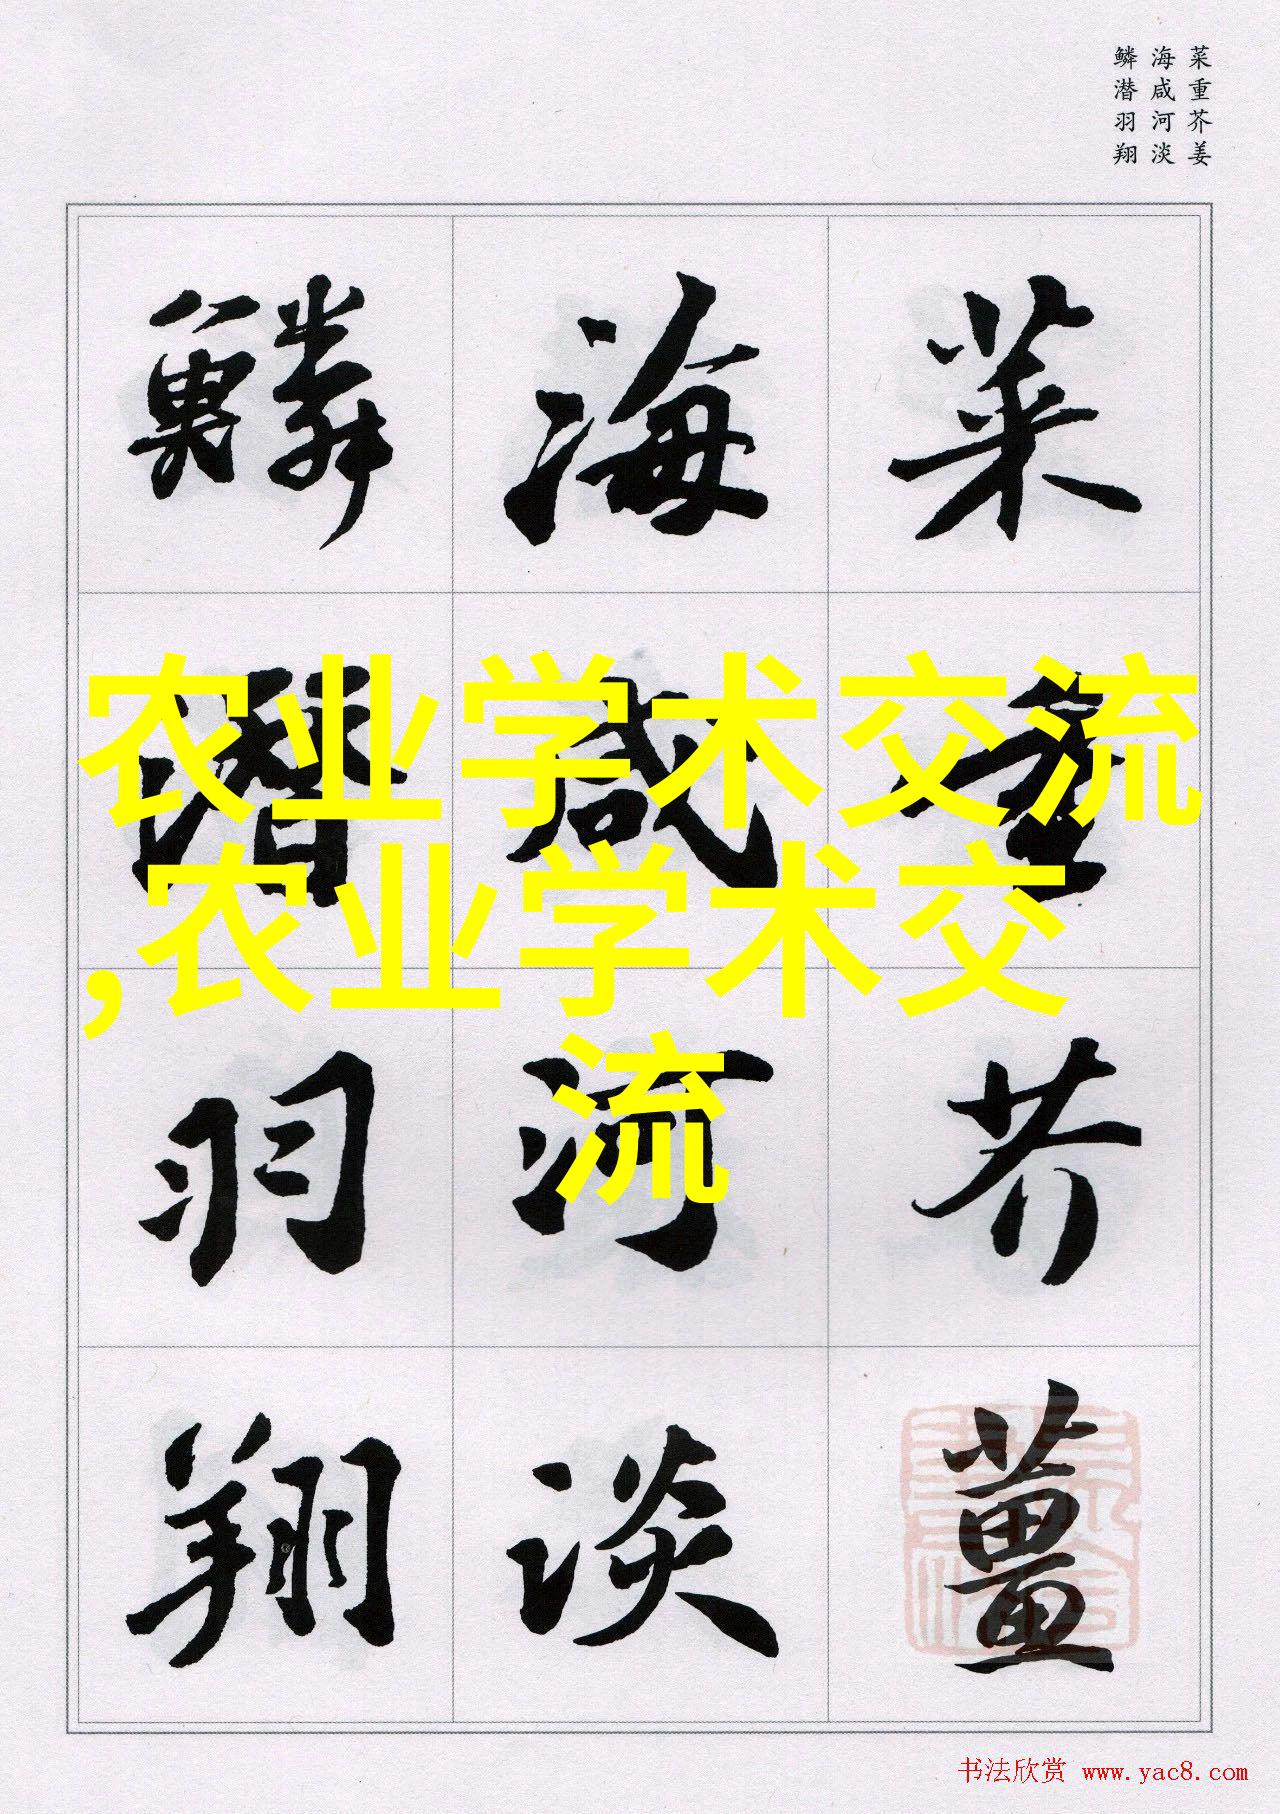 菜重芥姜
海咸河淡
鳞潜羽翔
菜重芥薑
海咸河淡
鱗潛羽翔
农业学术交流
,农业学术交
流
书法欣赏 www.yac8.com